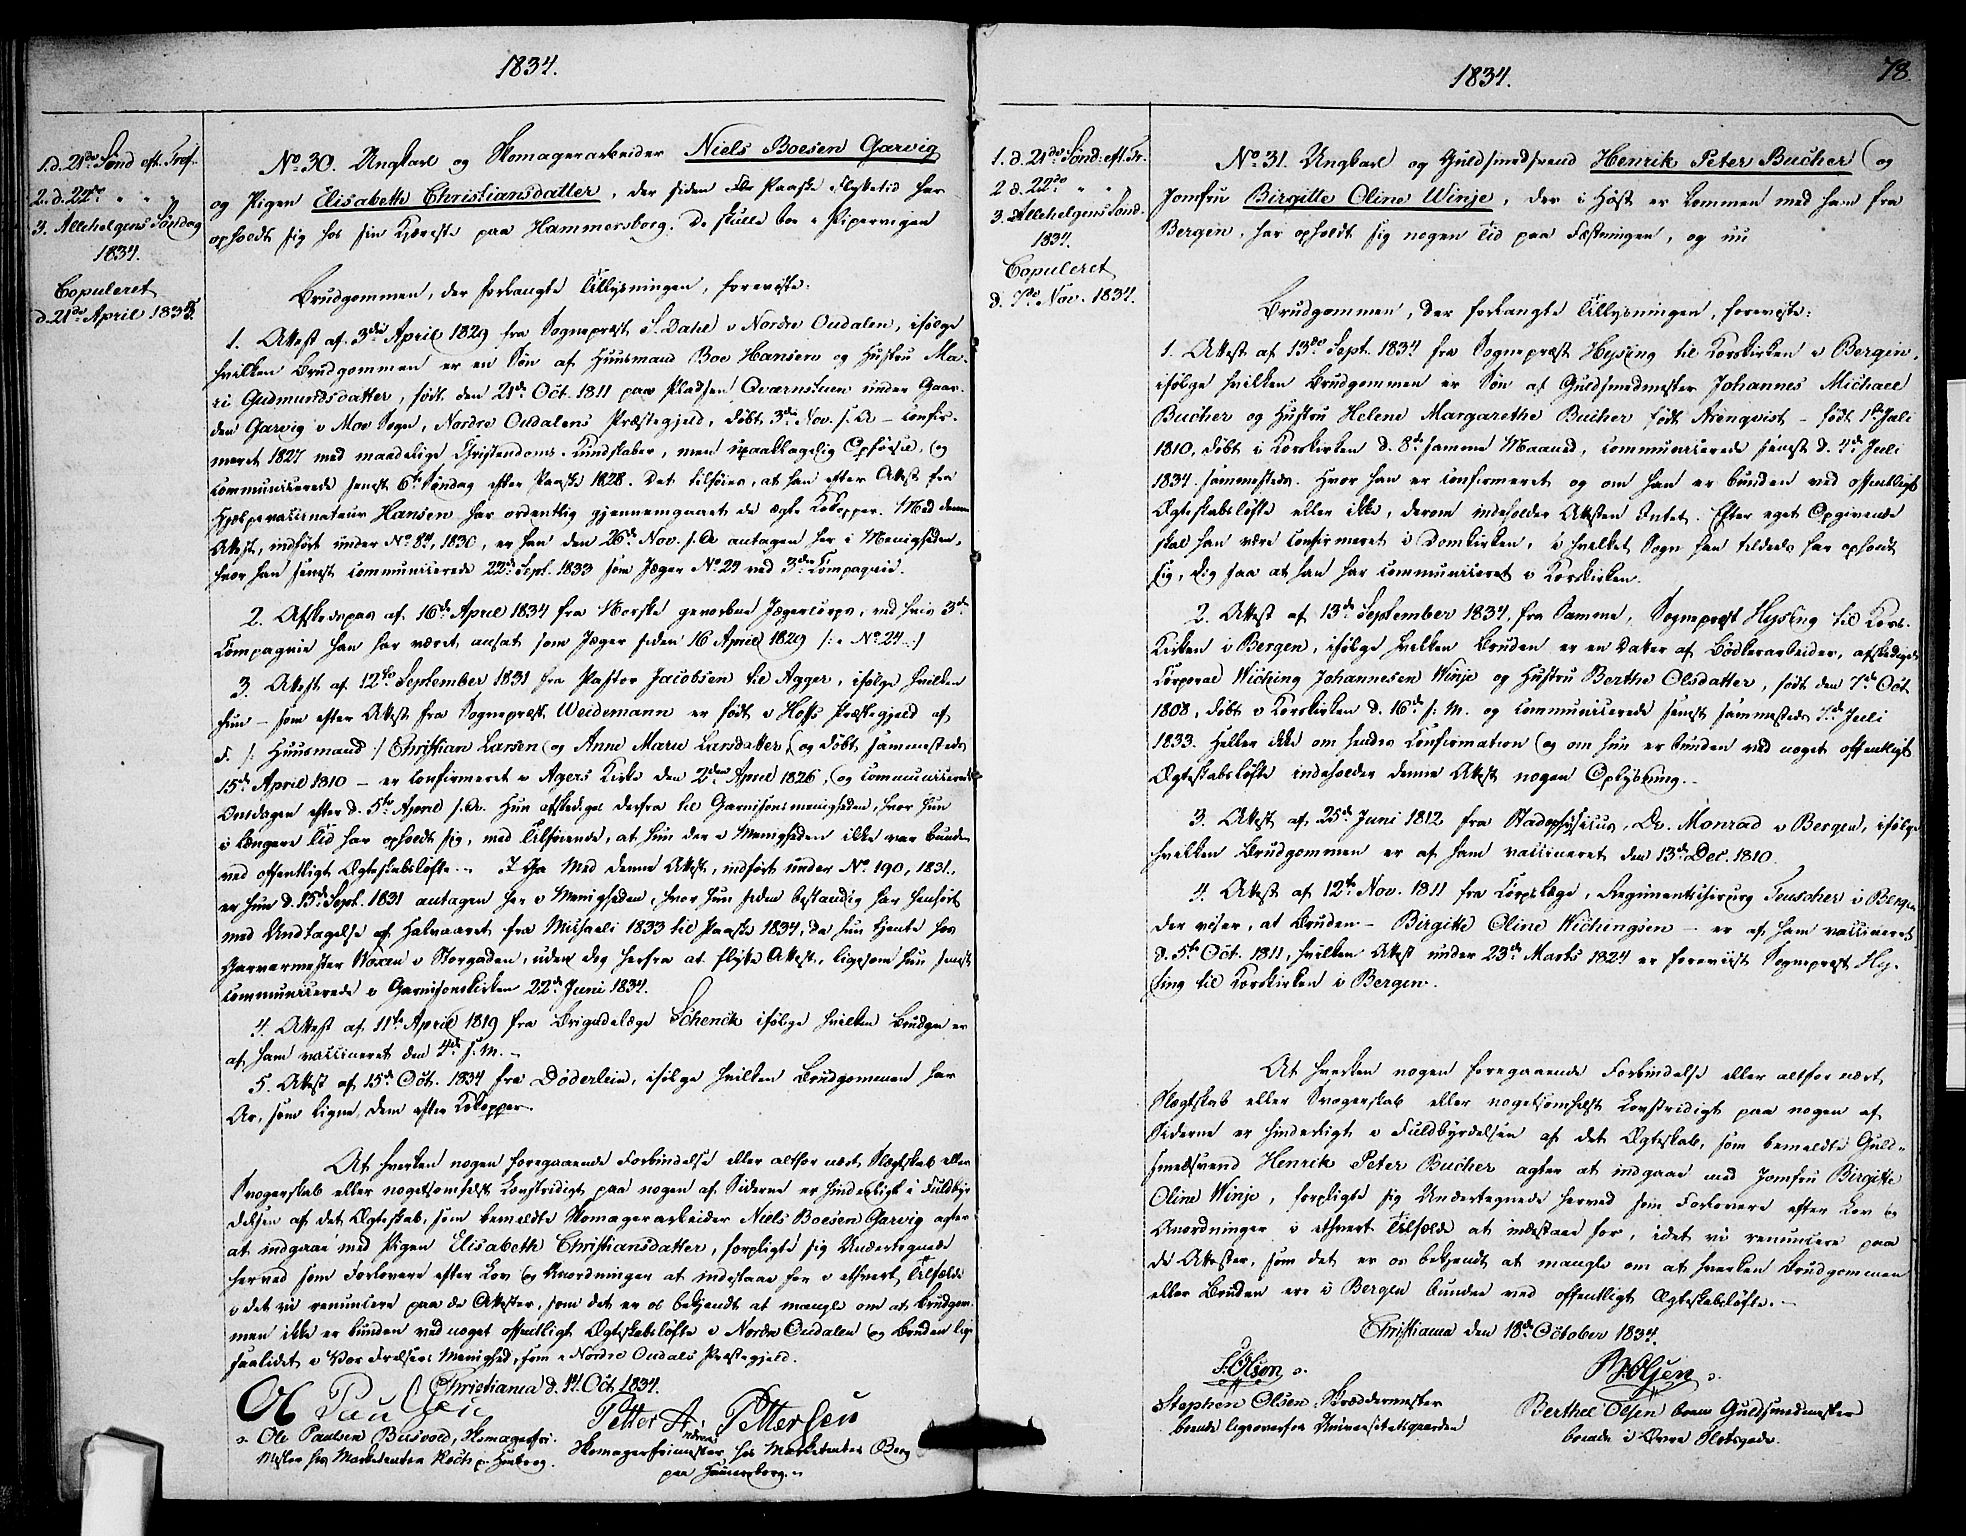 1834.
1.d. 21de Sønd. eft. Tref.
2. d. 22de " "
3. Allehelgens Søndag
1834.
Copuleret
d. 21de April 1835.
No. 30. Ungkarl og Skomagerarbeider Niels Boesen Garvig
og Pigen Elisabeth Christiansdatter, der siden Paaske Flyttetid har
opholdt sig hos sin Kjæreste paa Hammersborg. De skulle boe i Pipervigen
Brudgommen, der forlangte Tillysningen, foreviste:
1. Attest af 3die April 1829 fra Sognepræst S. Dahl i Nordre Oudalen, ifølge
hvilken Brudgommen er en Søn af Huusmand Boe Hansen og Hustru Ma-
ri Gudmundsdatter, født den 21de Oct. 1811 paa Pladsen Qværnstuen under Gaar-
den Garvig i Moe Sogn, Nordre Oudalens Præstegjeld, døbt 3die Nov. s. A. – confir-
meret 1827 med maadelige Christendoms-Kundskaber, men upaaklagelig Opførsel, og
communicerede senest 6te Søndag efter Paaske 1828. Det tilføies, at han efter Attest fra
Hjelpevaccinateur Hansen har ordentlig gjennemgaaet de ægte Kokopper. Med denne
Attest, indført under No. 84, 1830, er han den 26de Nov. s. A. antagen her i Menigheden,
hvor han senest communicerede 22de Sept. 1833 som Jæger No. 24 ved 3die Kompagnie.
2. Afskedspas af 16de April 1834 fra Norske gevorbne Jægercorps, ved hvis 3die
Compagnie han har været ansat som Jæger siden 16 April 1829 /: No. 24 :/
3. Attest af 12te September 1831 fra Pastor Jacobsen til Agger, ifølge hvilken
hun – som efter Attest fra Sognepræst Weidemann er født i Hoffs Præstegjeld af
F. /: Huusmand :/ Christian Larsen og Anne Marie Larsdatter, og døbt sammesteds
15de April 1810 – er confirmeret i Agers Kirke den 2den April 1826, og communicerede
Onsdagen efter d. 5te April s. A. Hun afskediges derfra til Garnisonsmenigheden, hvor hun
i længere Tid har opholdt sig, med Tilføiende, at hun der i Menigheden ikke var bunden
ved offentligt Ægteskabsløfte. – Med denne Attest, indført under No. 190, 1831,
er hun d. 15de Sept. 1831 antagen her i Menigheden, hvor hun siden bestandig har henhørt
med Undtagelse af Halvaaret fra Michaeli 1833 til Paaske 1834, da hun tjente hos
Garvermester Boxen i Storgaden, uden dog herfra at flytte Attest, ligesom hun senest
communicerede i Garnisonskirken 22de Juni 1834.
4. Attest af 11te April 1819 fra Brigadelæge Schenck ifølge hvilken Bruden er
af ham vaccineret den 4de s. M. –
5. Attest af 15de Oct. 1834 fra Døderlein, ifølge hvilken Brudgommen har
Ar, som ligne dem efter Kokopper.
At hverken nogen foregaaende Forbindelse eller altfor nært Slægtskab eller
Svogerskab eller nogetsomhelst Lovstridigt paa nogen af Siderne er hinderligt i Fuldbyr
delsen af det Ægteskab, som bemeldte Skomagerarbeider Niels Boesen Garvig agter
at indgaae med Pigen Elisabeth Christiansdatter, forpligte sig Undertegnede
herved som Forlovere efter Lov og Anordninger at indestaae for i ethvert Tilfælde
idet vi renuncere paa de Attester, som det er os bekjendt at mangle om at Brudgom-
men ikke er bunden ved noget offentligt Ægteskabsløfte i Nordre Oudalen og Bruden lige
saalidet i Vor Frelsers Menighed, som i Nordre Oudals Præstegjeld.
Christiania d. 14. Oct. 1834.
Ol Paulsen
Petter A. Pettersen
Ole Paulsen Busvold, Skomagerfri-
Mester hos Marketenter Koch p. Hmborg.
Skomagerfrimester hos Marketenter Berg
paa Hammersborg.
1834.
78.
1. d. 21de Sønd. eft. Tr.
2 d. 22de " "
3. Allehelgens Sønd.
1834.
Copuleret
d. 7de Nov. 1834.
No. 31. Ungkarl og Guldsmedsvend Henrik Peter Bucher og
Jomfru Birgitte Oline Winje, der i Høst er kommen med ham fra
Bergen, har opholdt sig nogen Tid paa Fæstningen, og nu
Brudgommen, der forlangte Tillysningen, foreviste:
1. Attest af 13de Sept. 1834 fra Sognepræst Hysing til Korskirken i Bergen,
ifølge hvilken Brudgommen er Søn af Guldsmedmester Johannes Michael
Bucher og Hustru Helene Margarethe Bucher født Arenqvist – født 1ste Juli
1810, døbt i Korskirken d. 8de samme Maaned, communicerede senest d. 4de Juli
1834 sammesteds. Hvor han er confirmeret og om han er bunden ved offentligt
Ægteskabsløfte eller ikke, derom indeholder Attesten Intet. Efter eget Opgivende
skal han være confirmeret i Domkirken, i hvilket Sogn han tildeels har opholdt
sig, dog saa at han har communiceret i Korskirken.
2. Attest af 13de September 1834 fra Samme, Sognepræst Hysing til Kors-
Kirken i Bergen, ifølge hvilken Bruden er en Datter af Bødkerarbeider, afskediget
Corporal Wiching Johannesen Winje og Hustru Berthe Olsdatter, født den 7de Oct
1808, døbt i Korskirken d. 16de s. M. og communicerede senest sammesteds 7de Juli
1833. Heller ikke om hendes Confirmation og om hun er bunden ved noget offentligt
Ægteskabsløfte indeholder denne Attest nogen Oplysning. –
3. Attest af 25de Juni 1812 fra Stadsphysicus, Dr. Monrad i Bergen, ifølge
hvilken Brudgommen er af ham vaccineret den 13de Dec. 1810.
4. Attest af 12te Nov. 1811 fra Corpslæge, Regimentschirurg Teuscher i Bergen
der viser, at Bruden – Birgitte Oline Wichingsen – er af ham vaccineret
d. 5te Oct. 1811, hvilken Attest under 23de Marts 1824 er foreviist Sognepræst Hy-
sing til Korskirken i Bergen.
At hverken nogen foregaaende Forbindelse eller altfor nært
Slægtskab eller Svogerskab eller nogetsomhelst Lovstridigt paa nogen af
Siderne er hinderligt i Fuldbyrdelsen af det Ægteskab, som bemeldte Guld-
smedsvend Henrik Peter Bucher agter at indgaae med Jomfru Birgitte
Oline Winje, forpligte sig Undertegnede herved som Forlovere efter Lov og
Anordninger i ethvert Tilfælde at indestaae for, idet vi renuncere paa
de Attester, som det er os bekjendt at mangle om at hverken Brudgommen
eller Bruden ere i Bergen bundne ved offentligt Ægteskabsløfte. –
Christiania den 18de October 1834.
S. Olsen
B. Olsen
Stephen Olsen, Skræddermester
boende ligeoverfor Universitetsgaarden
Berthel Olsen Guldsmedmester
boende i Øvre Slotsgade.